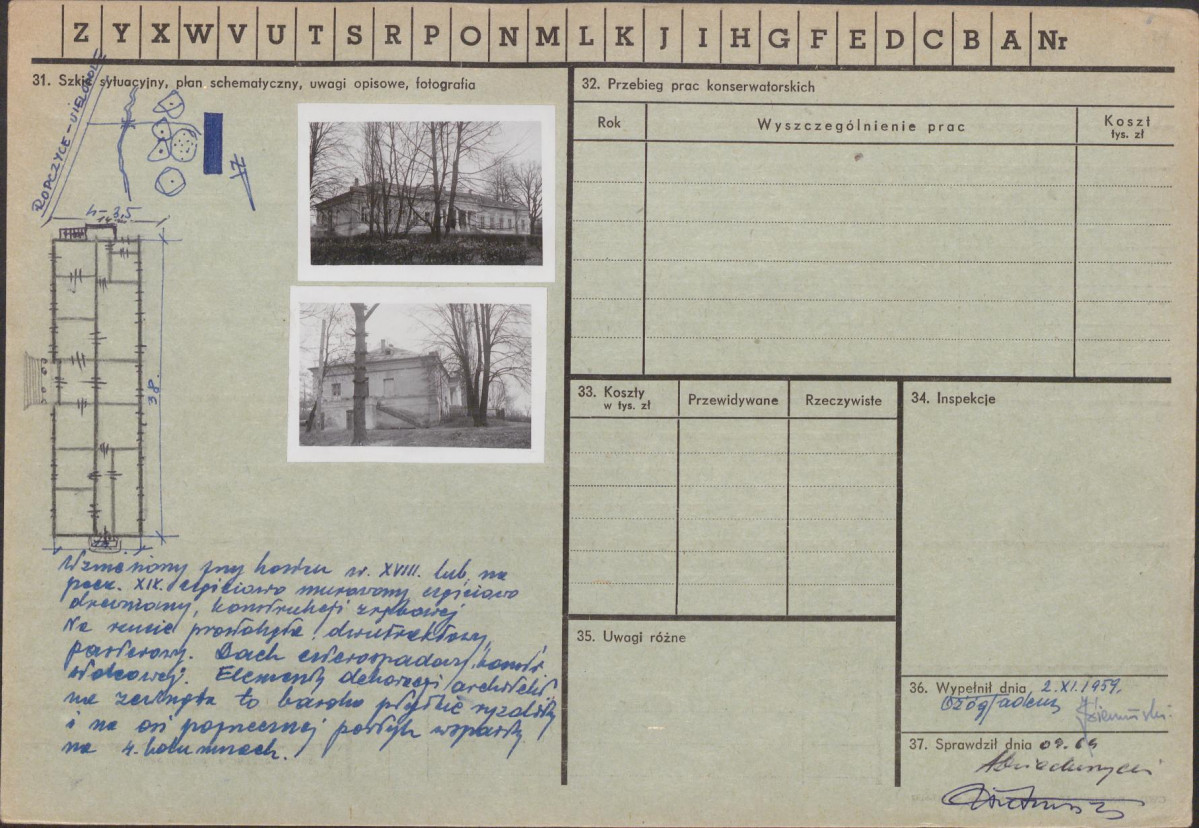 Z Y X W V U T S R P O N M L K J I H G F E D C B A Nr
31. Szkic sytuacyjny, plan schematyczny, uwagi opisowe, fotografia
ROPCZYCE - WIELOPOLE
h - 3,5
14
38.
Wzniesiony przy końcu w. XVIII. lub na
pocz. XIX. częściowo murowany częściowo
drewniany, konstrukcji zrębowej
Na rzucie prostokąta, dwutraktowy,
parterowy. Dach czterospadowy, konstr.
stolcowej. Elementy dekoracji architekt.
na zewnątrz to bardzo płytkie ryzality
i na osi poprzecznej portyk wsparty
na 4. kolumnach.
32. Przebieg prac konserwatorskich
Rok
Wyszczególnienie prac
Koszt
tys. zł
33. Koszty
w tys. zł
Przewidywane
Rzeczywiste
34. Inspekcje
35. Uwagi różne
36. Wypełnił dnia 2.XI.1959.
Ożóg Tadeusz
37. Sprawdził dnia 09.69